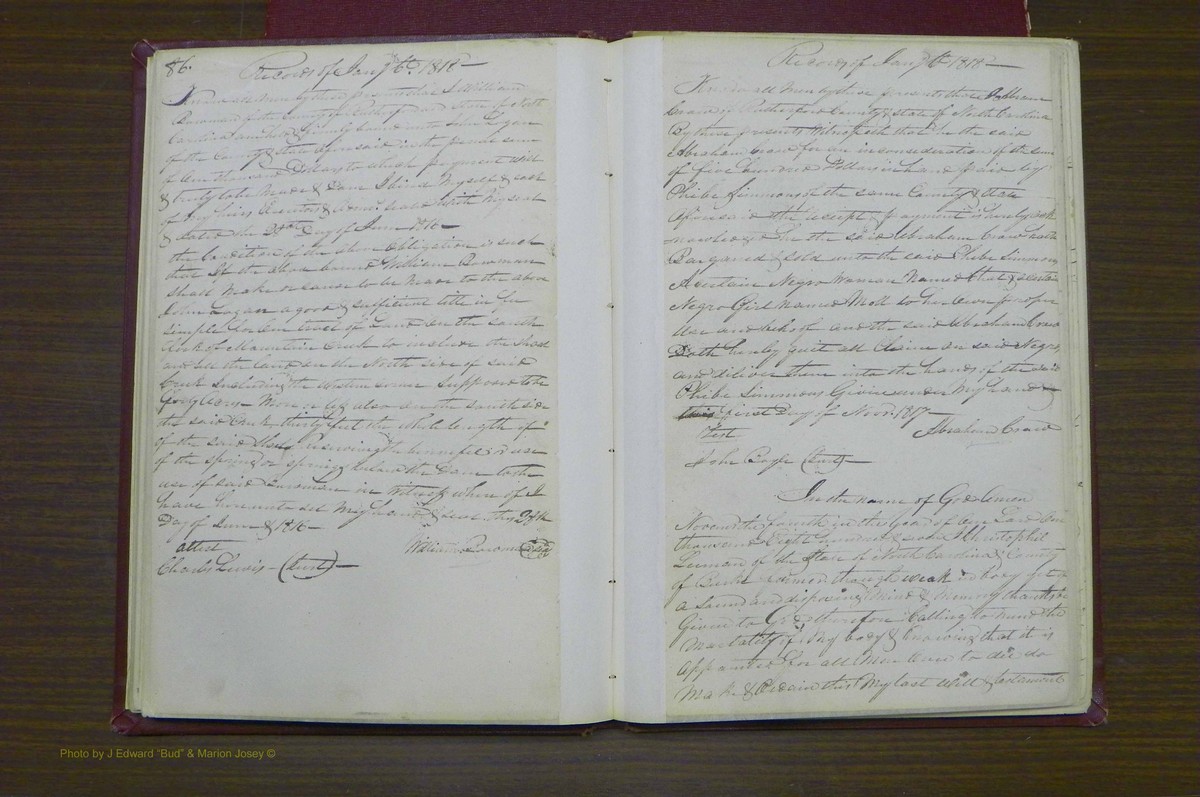 86.
Records of Jany 6th 1818
Know all men by these presents that I William
Bowman of the County of Rutherford and State of North
Carolina am held & firmly bound unto John Logan
of the County & State aforesaid in the penal sum
of One thousand Dollars to which payment will
& truly to be made & done I bind myself & each
of my heirs Executors & Adms. Sealed with my seal
& dated the 28th Day of June 1816
the Condition of the above obligation is such
that if the above bound William Bowman
shall make or cause to be made to the above
John Logan a good & sufficient title in fee
simple for one tract of Land on the south
fork of Mountain Creek to include the
and all the land on the North side of said
Creek Including the western corner supposed to be
forty Acres More or less also on the south side
the said Creek thirty feet the whole length of
of the said reserving the benefit & use
of the spring or springs below the Dam to the
use of said Bowman in Witness where of I
have hereunto set My hand & seal this 28th
Day of June & 1816
attest
William Bowman (seal)
Charles Lewis (Jurt)
Records of Jany 6th 1818
Know all Men by these presents that I Abraham
Crow of Rutherford County & State of North Carolina
By these presents Witnesseth that he the said
Abraham Crow for an in consideration of the sum
of five hundred Dollars in hand paid by
Phibe Simmons of the same County & State
aforesaid the receipt & payment is hereby ack
nowledged he the said Abraham Crow hath
Bargained & sold unto the said Phibe Simmons
A certain Negro Woman Named & a certain
Negro Girl named Moll to her own proper
Use and behoof and the said Abraham Crow
Doth hereby quit all Claim on said Negros
and deliver them into the hands of the said
Phibe Simmons Given under My hand
this first Day of Novr. 1817
Test
Abraham Crow
John (Jurt)
In the name of God Amen
November fourth in the year of our Lord One
thousand Eight hundred & Christopher
of the State of North Carolina & County
of Burke & though weak in body yet of
a Sound and disposing Mind & Memory thanks be
Given to God therefore Calling to mind the
Mortality of My body & knowing that it is
appointed for all Men once to die do
Make & Ordain this My last Will & testament
Photo by J Edward "Bud" & Marion Josey ©